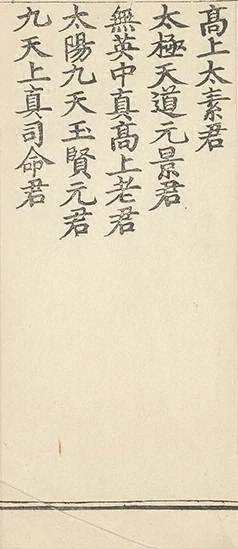 高上太素君
太極天道元景君
無英中真高上老君
太陽九天玉賢元君
九天上真司命君